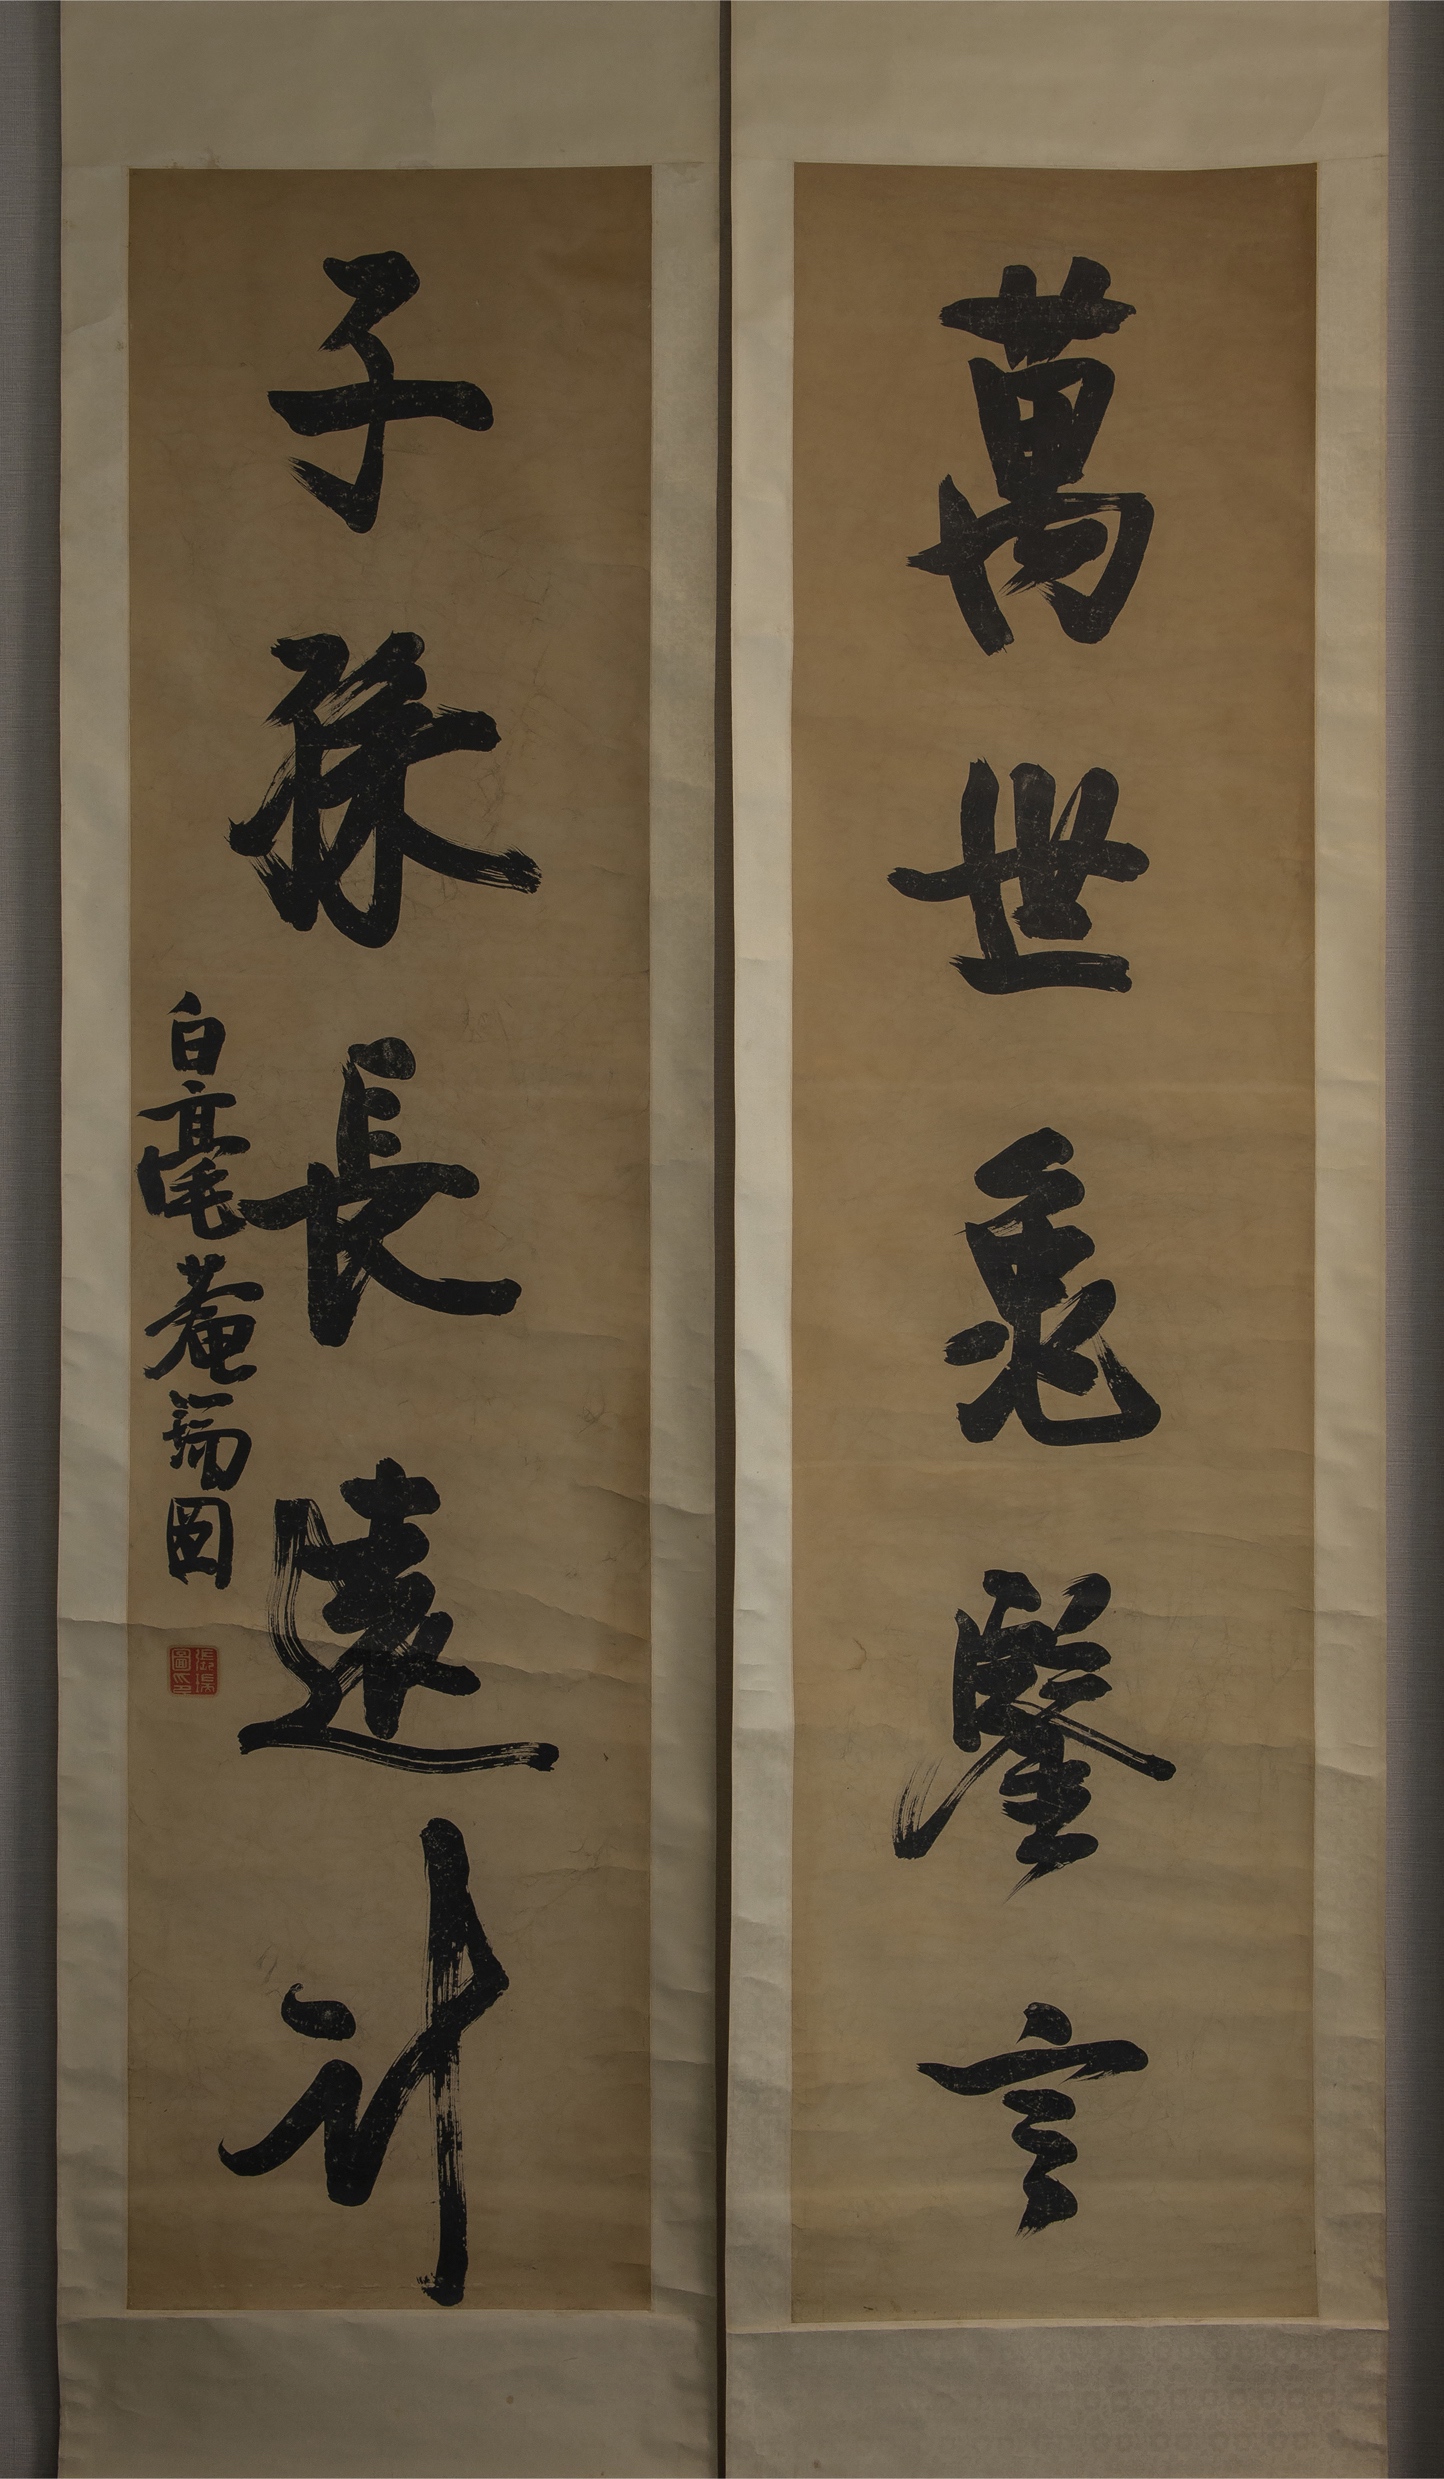 萬世龜鑒言
子孫長遠計
白毫菴瑞圖